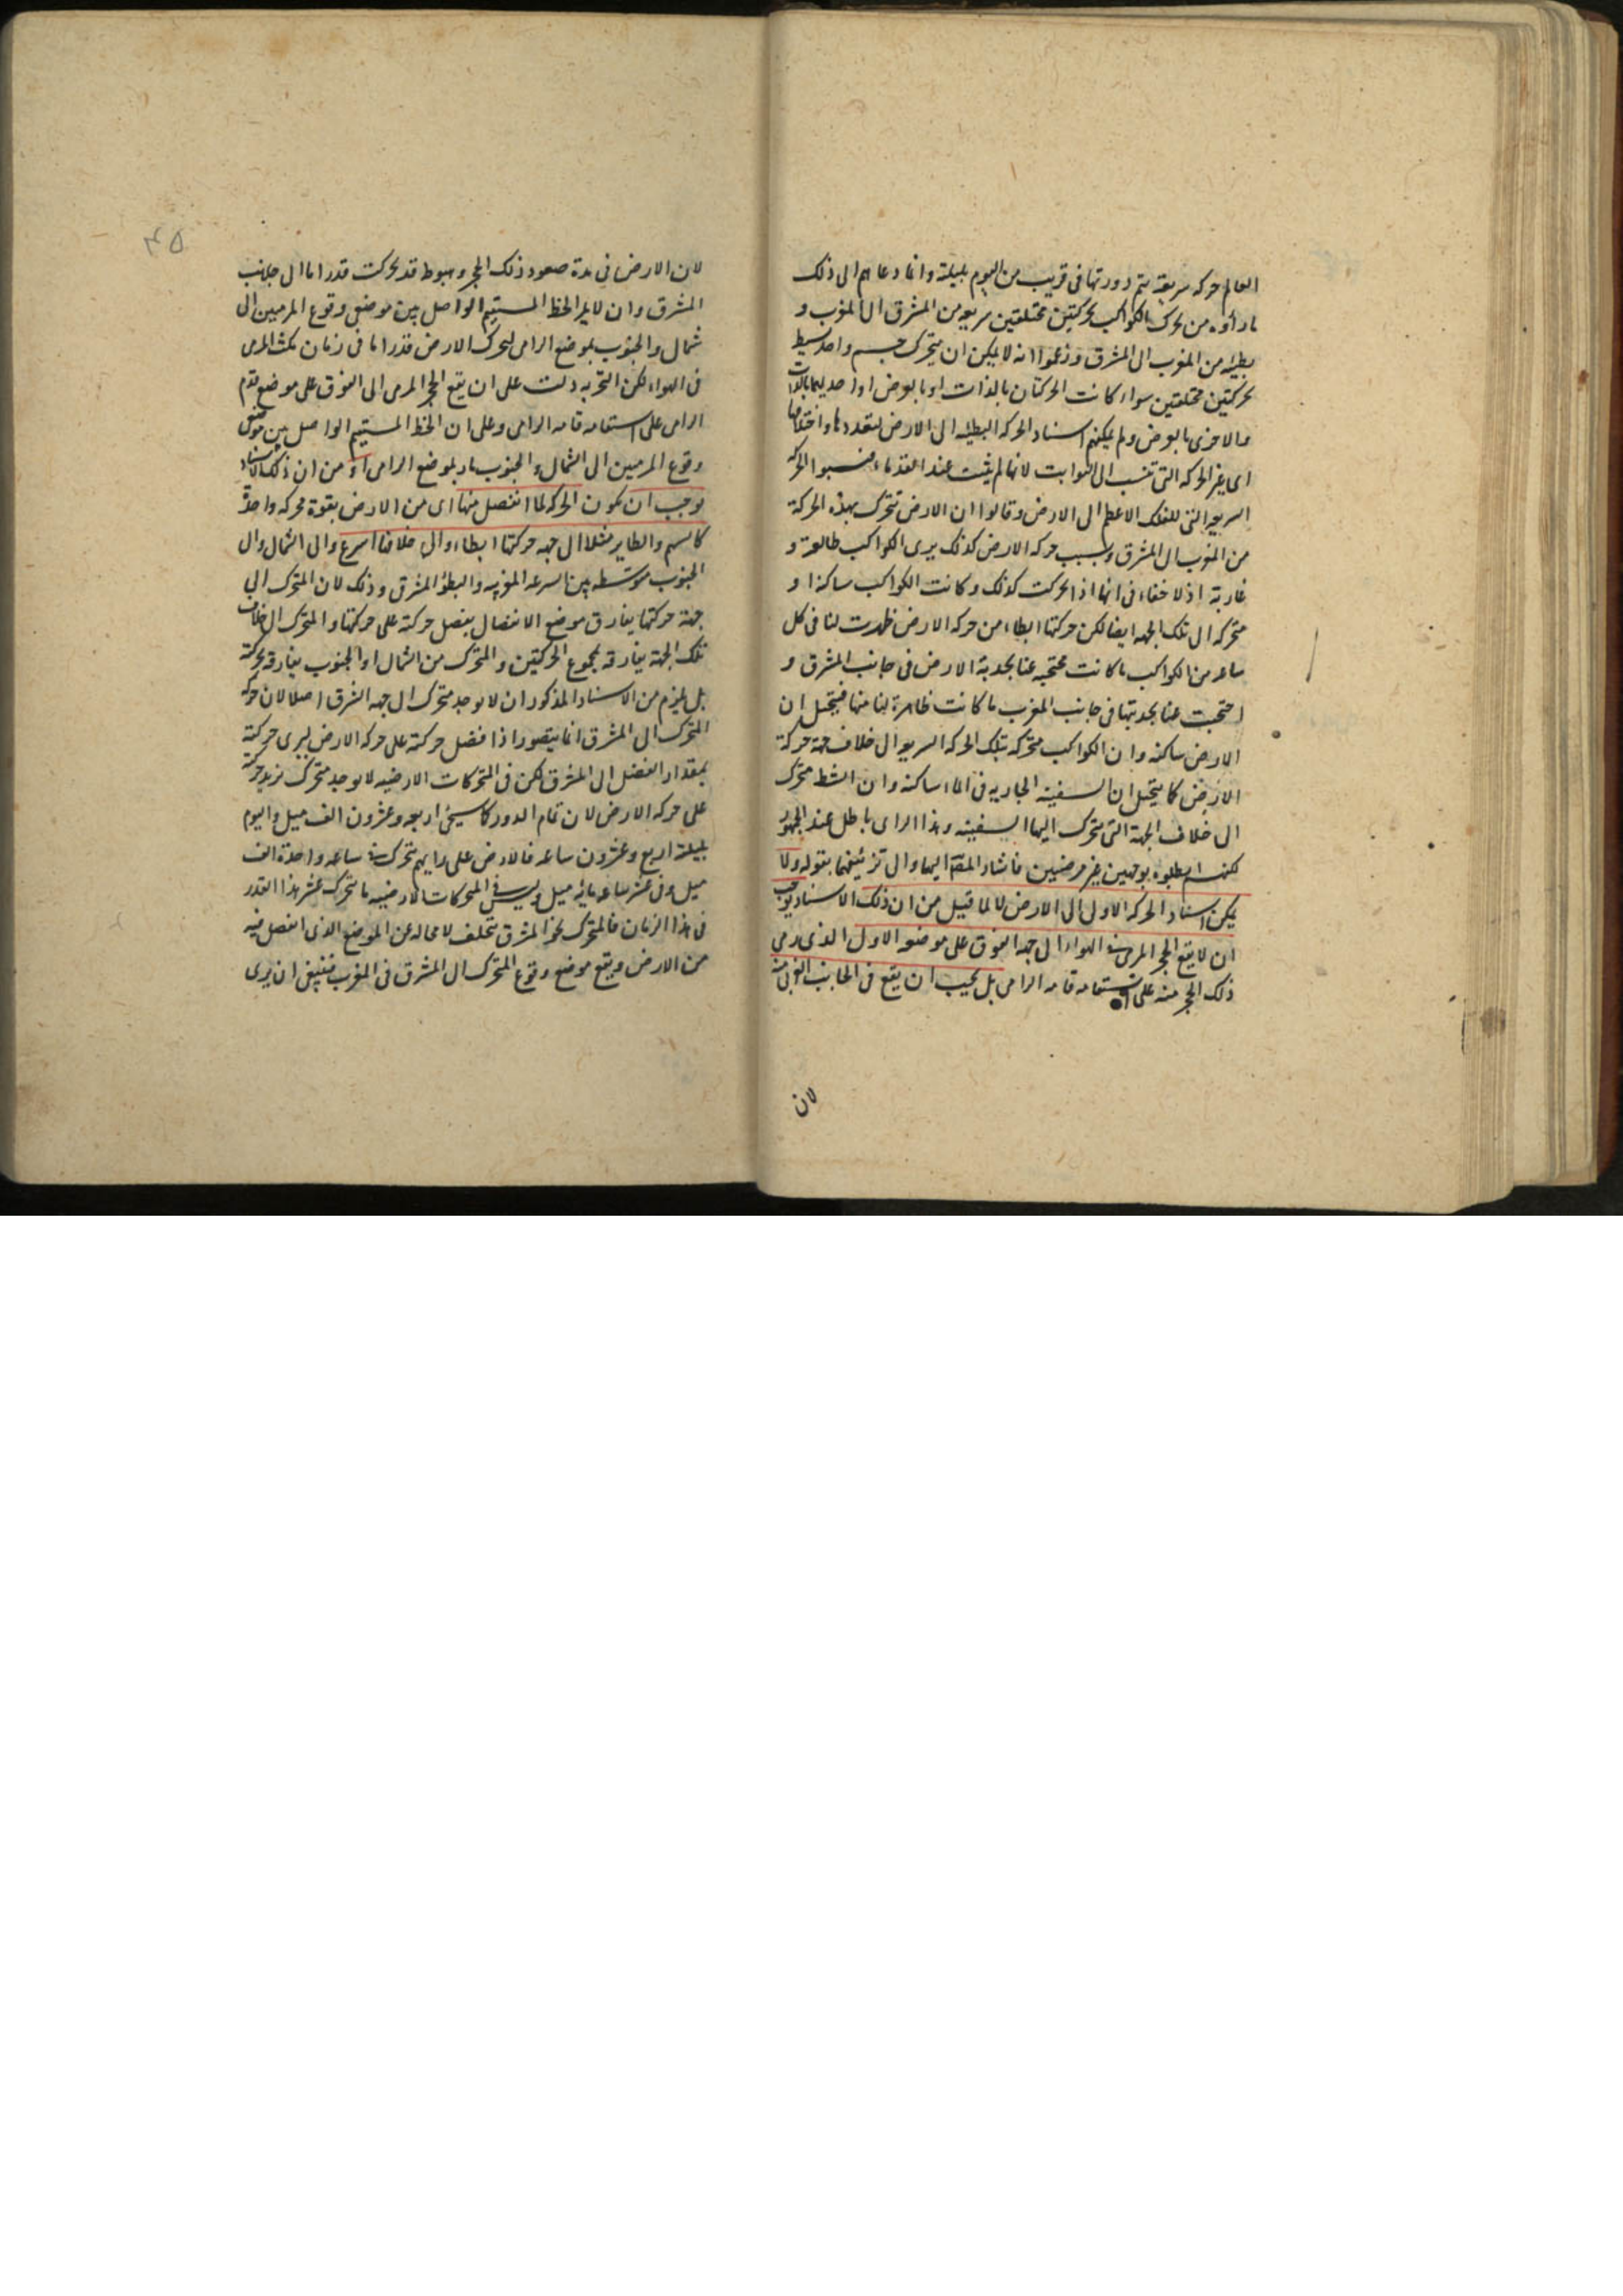 العالم حركه سريعة يتم دورتها فى قريب من اليوم بليلته وانما دعاهم الى ذلك
ما رأوه من تحرك الكواكب بحركتين مختلفتين سريعه من المشرق الى المغرب و
بطيئه من المغرب الى المشرق وزعموا انه لا يمكن ان يتحرك جسم واحد بسيط
بحركتين مختلفتين سواء كانت الحركتان بالذات او بالعرض او احديهما بالذات
والاخرى بالعرض ولم يمكنهم اسناد الحركه البطيئه الى الارض لتعددها واختلافها
اى غير الحركه التى تنسب الى الثوابت لانها لم يثبت عند القدماء فنسبوا الحركه
السريعه التى للفلك الاعظم الى الارض وقالوا ان الارض تتحرك بهذه الحركة
من المغرب الى المشرق وبسبب حركه الارض كذلك يرى الكواكب طالعة و
غاربة اذ لا خفاء فى انها اذا تحركت كذلك وكانت الكواكب ساكنة او
متحركه الى تلك الجهه ايضا لكن حركتها ابطاء من حركه الارض ظهرت لنا فى كل
ساعه من الكواكب ما كانت محتجبه عنا بحدبة الارض فى جانب المشرق و
احتجبت عنا بحدبتها فى جانب المغرب ما كانت ظاهرة لنا منها فيتخيل ان
الارض ساكنه وان الكواكب متحركه بتلك الحركه السريعه الى خلاف جهة حركة
الارض كما يتخيل ان السفينه الجاريه فى الماء ساكنة وان الشط متحرك
الى خلاف الجهة التى يتحرك اليها السفينه وهذا الراى باطل عند الجمهور
لكنهم ابطلوه بوجهين غير مرضيين فاشار المقم اليهما والى تزييفهما بقوله ولا
يمكن اسناد الحركه الاولى الى الارض لا لما قيل من ان ذلك الاسناد يوجب
ان لا يقع الحجر المرمى فى الهواء الى جهه الفوق على موضعه الاول الذى رمى
ذلك الحجر منه على استقامه قامه الرامى بل يجب ان يقع فى الجانب الغربى منه
لان
٤٥
لان الارض فى مدة صعود ذلك الحجر وهبوطه قد تحركت قدرا ما الى جانب
المشرق وان لا يمر الخط المستقيم الواصل بين موضعى وقوع المرميين الى
شمال والجنوب بموضع الرامى لتحرك الارض قدرا ما فى زمان مكث المرمى
فى الهواء لكن التجربه دلت على ان يقع الحجر المرمى الى الفوق على موضع قدم
الرامى على استقامه قامه الرامى وعلى ان الخط المستقيم الواصل بين موضعى
وقوع المرميين الى الشمال والجنوب مار بموضع الرامى او من ان ذلك الاسناد
يوجب ان يكون الحركه لما انفصل منها اى من الارض بقوة محركه واحدة
كالسهم والطاير مثلا الى جهه حركتها ابطاء والى خلافها اسرع والى الشمال والى
الجنوب متوسطه بين السرعه المغربيه والبطؤ المشرقى وذلك لان المتحرك الى
جهة حركتها يفارق موضع الانفصال بفضل حركته على حركتها والمتحرك الى خلاف
تلك الجهة يفارقه بمجموع الحركتين والمتحرك من الشمال او الجنوب يفارقه بحركته
بل يلزم من الاسناد المذكور ان لا يوجد متحرك الى جهه الشرق اصلا لان حركه
المتحرك الى المشرق انما يتصور اذا فضل حركته على حركه الارض ليرى حركته
بمقدار الفضل الى المشرق لكن فى المتحركات الارضيه لا يوجد متحرك يزيد حركته
على حركه الارض لان تمام الدور كما سيجئ اربعه وعشرون الف ميل واليوم
بليلته اربع وعشرون ساعه فالارض على رايهم تتحرك فى ساعه واحدة الف
ميل وفى عشر ساعه مايه ميل وليس فى المتحركات الارضيه ما يتحرك عشر هذا القدر
فى هذا الزمان فالمتحرك نحو المشرق يتخلف لا محاله عن الموضع الذى انفصل فيه
من الارض ويقع موضع وقوع المتحرك الى المشرق فى المغرب فينبغى ان يرى